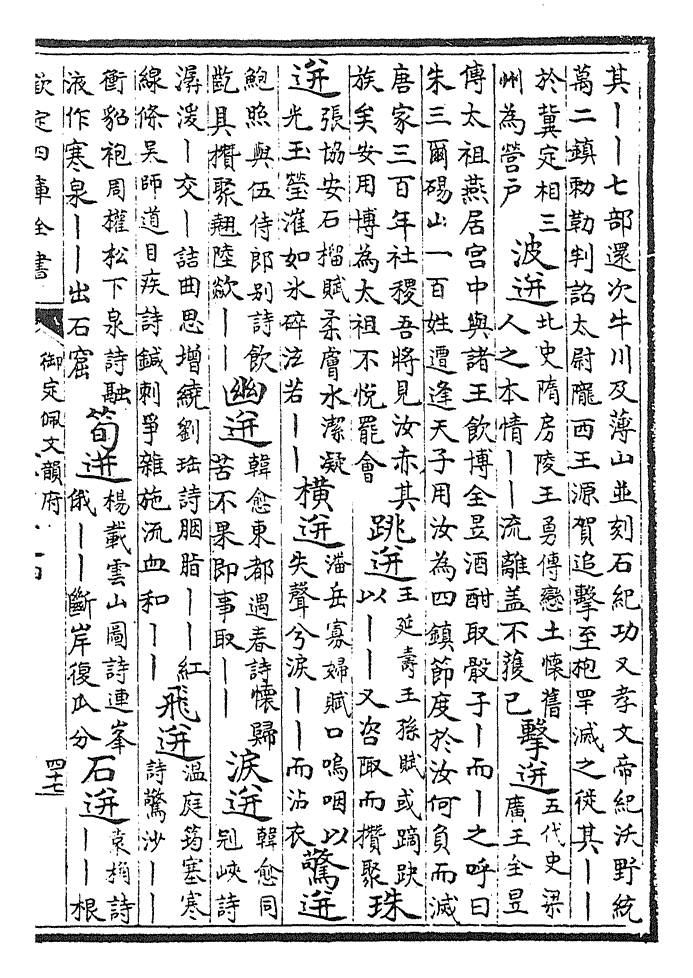 其丨丨七部還次牛川及薄山並刻石紀功又孝文帝紀沃野統
萬二鎮勑勒判詔太尉隴西王源賀追擊至枹罕滅之徙其丨丨
於冀定相三
州為營戶
波迸
北史隋房陵王勇傳戀土懷舊
人之本情丨丨流離盖不獲已
擊迸
五代史梁
廣王全昱
傳太祖燕居宫中與諸王飲博全昱酒酣取骰子丨而丨之呼曰
朱三爾碭山一百姓遭逢天子用汝為四鎮節度於汝何負而滅
唐家三百年社稷吾將見汝赤其
族矣安用博為太祖不悦罷會
跳迸
王延壽王孫賦或蹢趹
以丨丨又咨陬而攢聚
珠
迸
張協安石榴賦柔膚水潔凝
光玉瑩漼如氷碎泫若丨丨
橫迸
潘岳寡婦賦口嗚咽以
失聲兮淚丨丨而沾衣
驚迸
鮑照與伍侍郎别詩飲
齕具攢聚翹陸歘丨丨
幽迸
韓愈東都遇春詩懷歸
苦不果即事取丨丨
淚迸
韓愈同
冠峽詩
潺湲丨交丨詰曲思增繞劉珤詩胭脂丨丨紅
線條吳師道目疾詩鍼刺爭雜施流血和丨丨
飛迸
温庭筠塞寒
詩驚沙丨丨
衝貂袍周權松下泉詩融
液作寒泉丨丨出石窟
筍迸
楊載雲山圖詩連峯
俄丨丨斷岸復瓜分
石迸
袁桷詩
丨丨根
欽定四庫全書
御定佩文韻府
四十七